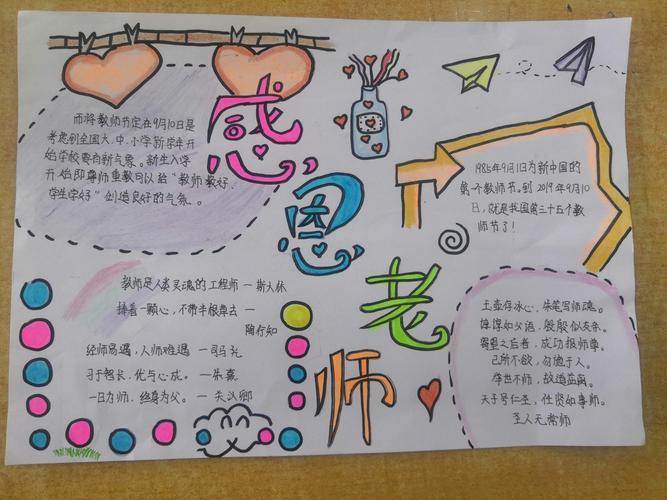 感恩老师
而将教师节定在9月10日是
考虑到全国大、中、小学新学年开
始学校要有新气象。新生入学
开始即尊师重教可以给“教师教好，
学生学好”创造良好的气氛。
1985年9月10日为新中国的
第一个教师节。到2019年9月10
日，就是我国第三十五个教
师节了！
教师是人类灵魂的工程师—斯大林
捧着一颗心，不带半根草去—
陶行知
经师易遇，人师难遇—司马光
习于智长，优与心成。—朱熹
一日为师，终身为父。—关汉卿
玉壶存冰心，朱笔写师魂。
谆谆如父语，殷殷似友亲。
蜀望之后者，成功报师尊。
己所不欲，勿施于人。
举世不师，故道益离。
天子号仁圣，任贤如事师。
圣人无常师